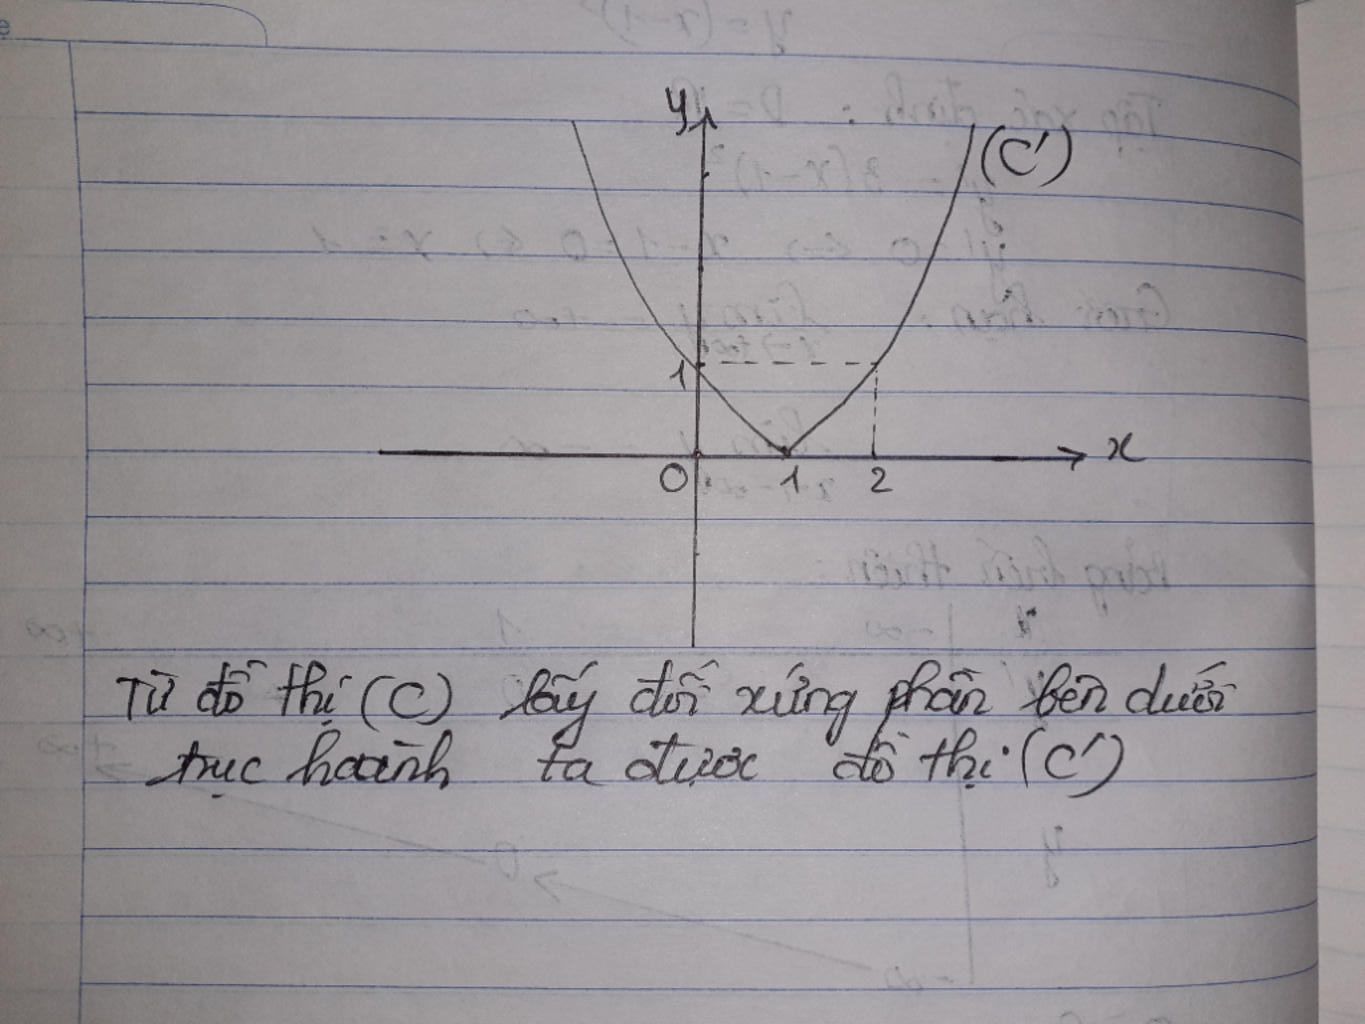 y
(C')
1
x
O 1 2
Từ đồ thị (C) lấy đối xứng phần bên dưới
trục hoành ta được đồ thị (C')